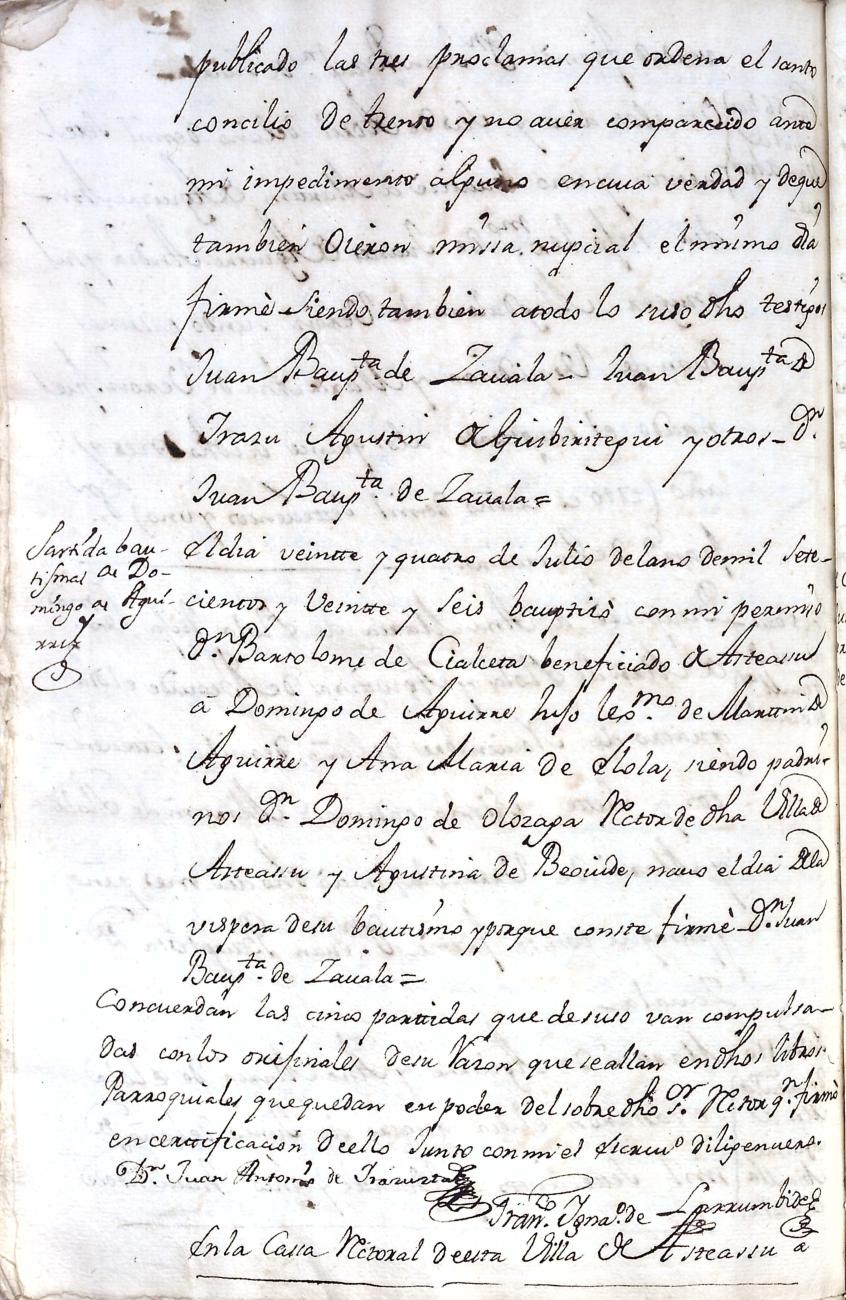 publicado las tres proclamas que ordena el santo
concilio de trento y no auer comparecido ante
mi impedimento alguno encuia verdad y deque
tambien Oieron missa nupcial el mismo dia
firmè siendo tambien atodo lo suso dho testigos
Juan Bauptta de Zauala = Juan Bauptta de
Irazu Agustin de Guibiritegui y otros _ Dn.
Juan Bauptta. de Zauala =
Partida bau-
tismal de Do-
mingo de Agui-
rre
El dia veintte y quatro de Julio delano demil sete-
cientos y Veintte y seis bauptizò con mi permiso
Dn. Bartolome de Cialceta beneficiado de Asteassu
a Domingo de Aguirre hijo lexmo. de Marttin de
Aguirre y Ana Maria de Elola, siendo padri-
nos Dn. Domingo de Olozaga Rector de dha Villa de
Asteassu y Agustina de Beouide, nacio eldia dela
vispera desu bautismo yporque conste firmè Dn. Juan
Bauptta. de Zauala =
Concuerdan las cinco partidas que de suso van compulsa-
das conlos originales desu Razon que seallan endhos libros
Parroquiales que quedan en poder del sobre dho Sr. Rector qn. firmò
en certtificacion deello Junto conmi el Escriuo diligenciero.
Dn. Juan Antonio de Irazuzta
Franco. Ignao. de Larrumbide
En la Cassa Rectoral deesta Villa de Asteassu a